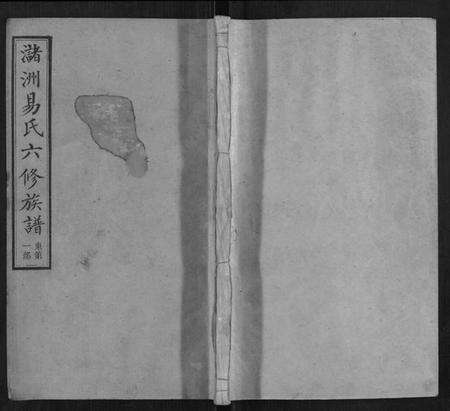 瀦洲易氏六修族譜
東第
一部